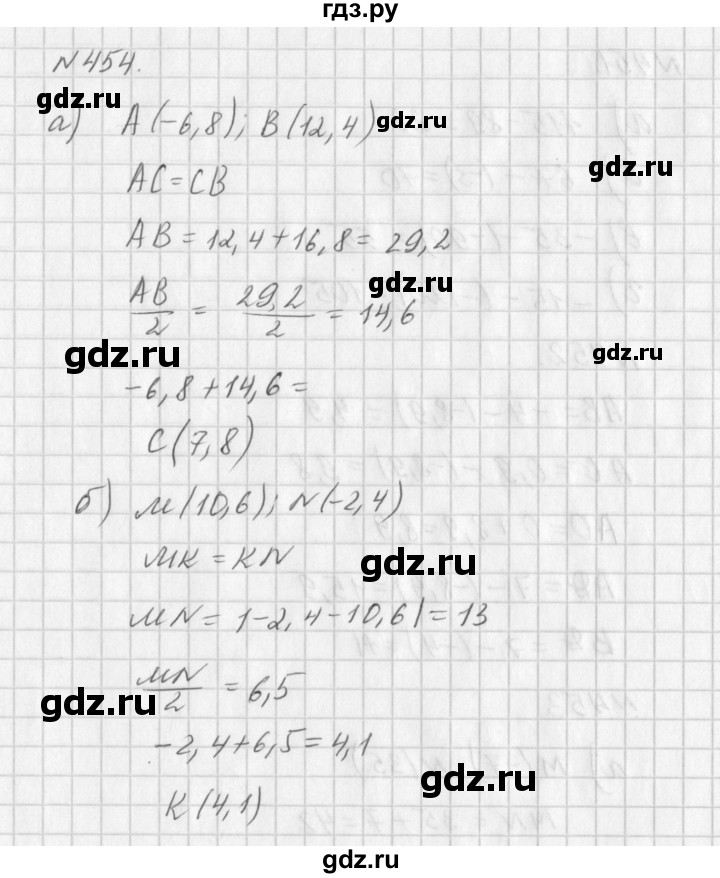 гдз.ру
№454.
gdz.ru
а) A(-6,8); B(12,4)
gdz.ru
AC=CB
gdz.ru
AB=12,4+16,8=29,2
gdz.ru
AB/2 = 29,2/2 = 14,6
gdz.ru
gdz.ru
-6,8+14,6=
C(7,8)
б) M(10,6); N(-2,4)
MK=KN
gdz.ru
MN=|-2,4-10,6|=13
gdz.ru
MN/2 = 6,5
gdz.ru
gdz.ru
-2,4+6,5=4,1
gdz.ru
K(4,1)
gdz.ru